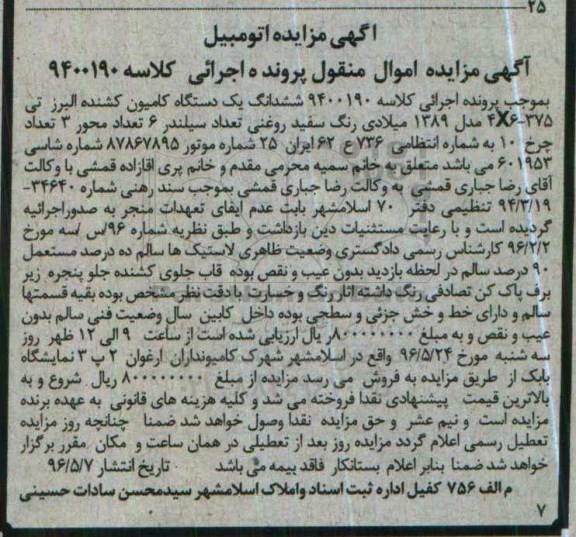 ۲۵
اگهی مزایده اتومبیل
آگهی مزایده اموال منقول پرونده اجرائی کلاسه ۹۴۰۰۱۹۰
بموجب پرونده اجرائی کلاسه ۹۴۰۰۱۹۰ ششدانگ یک دستگاه کامیون کشنده البرز تی
۳۷۵-۴X۶ مدل ۱۳۸۹ میلادی رنگ سفید روغنی تعداد سیلندر ۶ تعداد محور ۳ تعداد
چرخ ۱۰ به شماره انتظامی ۷۳۶ ع ۶۲ ایران ۲۵ شماره موتور ۸۷۸۶۷۸۹۵ شماره شاسی
۶۰۱۹۵۳ می باشد متعلق به خانم سمیه محرمی مقدم و خانم پری اقازاده قمشی با وکالت
آقای رضا جباری قمشی به وکالت رضا جباری قمشی بموجب سند رهنی شماره ۳۴۶۴۰-
۹۴/۳/۱۹ تنظیمی دفتر ۷۰ اسلامشهر بابت عدم ایفای تعهدات منجر به صدوراجرائیه
گردیده است و با رعایت مستثنیات دین بازداشت و طبق نظریه شماره ۹۶/س /سه مورخ
۹۶/۲/۲ کارشناس رسمی دادگستری وضعیت ظاهری لاستیک ها سالم ده درصد مستعمل
۹۰ درصد سالم در لحظه بازدید بدون عیب و نقص بوده قاب جلوی کشنده جلو پنجره زیر
برف پاک کن تصادفی رنگ داشته اثار رنگ و خسارت با دقت نظر مشخص بوده بقیه قسمتها
سالم و دارای خط و خش جزئی و سطحی بوده داخل کابین سال وضعیت فنی سالم بدون
عیب و نقص و به مبلغ ۸۰۰۰۰۰۰۰۰ر یال ارزیابی شده است از ساعت ۹ الی ۱۲ ظهر روز
سه شنبه مورخ ۹۶/۵/۲۴ واقع در اسلامشهر شهرک کامیونداران ارغوان ۲ پ ۳ نمایشگاه
بابک از طریق مزایده به فروش می رسد مزایده از مبلغ ۸۰۰۰۰۰۰۰۰ ریال شروع و به
بالاترین قیمت پیشنهادی نقدا فروخته می شد و کلیه هزینه های قانونی به عهده برنده
مزایده است و نیم عشر و حق مزایده نقدا وصول خواهد شد ضمنا چنانچه روز مزایده
تعطیل رسمی اعلام گردد مزایده روز بعد از تعطیلی در همان ساعت و مکان مقرر برگزار
خواهد شد ضمنا بنابر اعلام بستانکار فاقد بیمه می باشد تاریخ انتشار ۹۶/۵/۷
م الف ۷۵۶ کفیل اداره ثبت اسناد واملاک اسلامشهر سیدمحسن سادات حسینی
۷